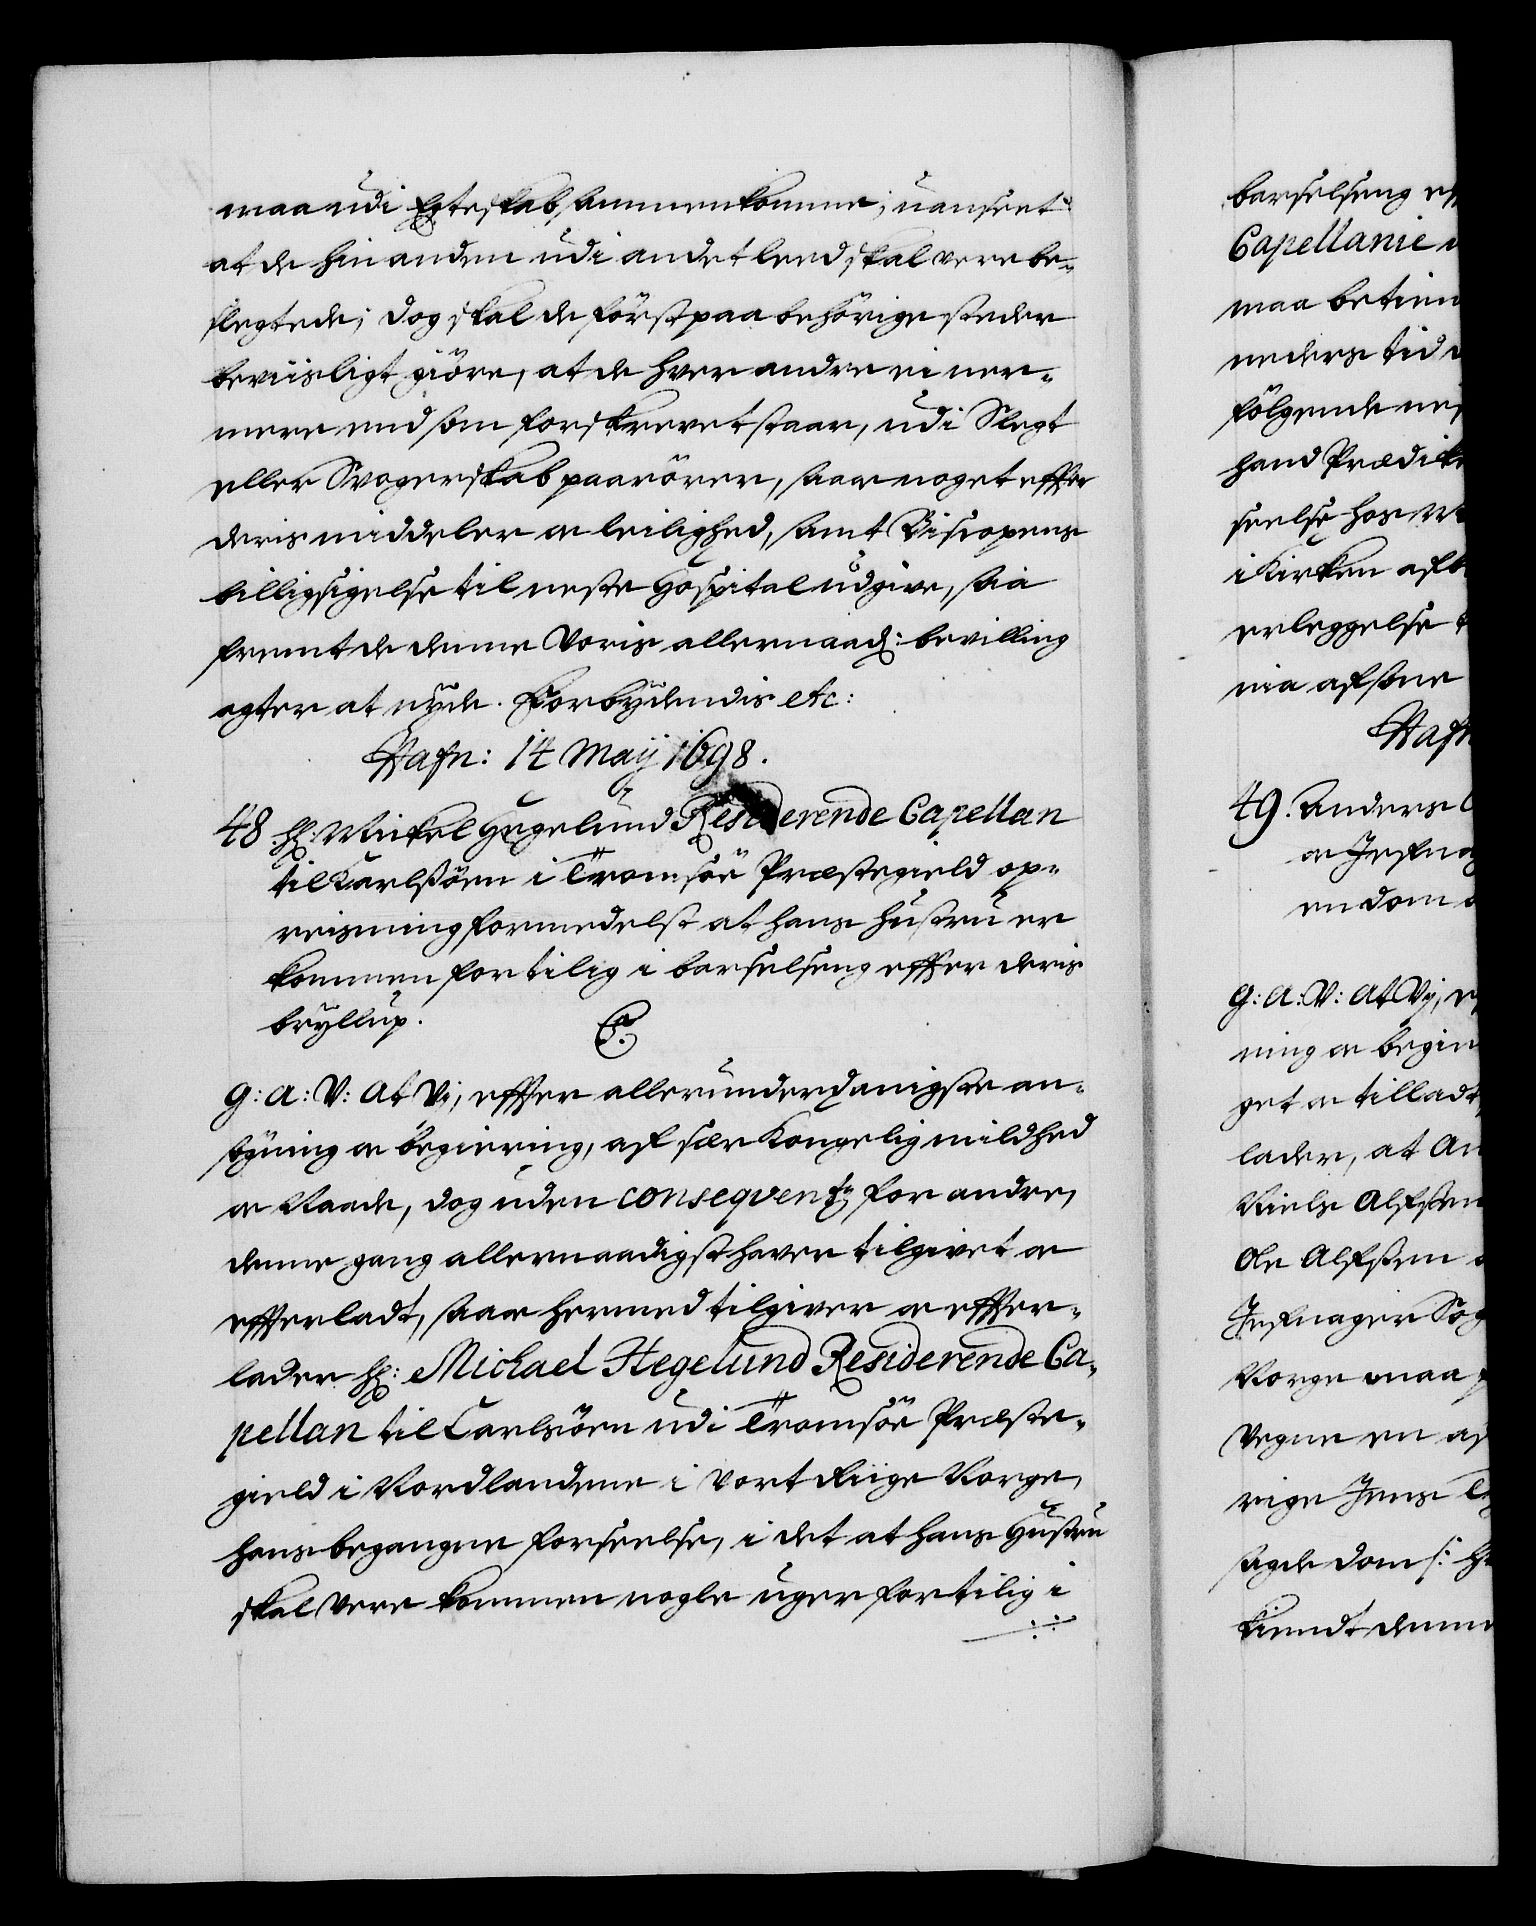 maa udi Egteskab sammenkomme; uanseet
at de hinanden udi andet leed skal vere be-
slegtede; dog skal de först paa behörige steder
beviisligt giöre, at de hver andre ei ner-
mere end som forskrevet staar, udi Slegt
eller Svogerskab paarörer, saa og noget effter
deris middeler oc leilighed, samt Biscopens
billigsigelse til neste Hospital udgive, saa
fremt de denne Voris allernaad: bevilling
agter at nyde. Forbydendis etc:
Hafn: 14 Maij 1698.
48. Hr: Mickel Hegelund Residerende Capellan
til Carlsöen i Tromsöe Præstegield op-
reisning formedelst at hans Hustru er
kommen for tilig i barselseng effter deris
bryllup.
C.
G: A: V: At Vi, effter allerunderdanigste an-
sögning oc begiering, af sær Kongelig mildhed
oc Naade, dog uden conseqventz for andre,
denne gang allernaadigst haver tilgivet oc
effterladt, saa oc hermed tilgiver oc effter-
lader Hr: Michael Hegelund Residerende Ca-
pellan til Carlsöen udi Tromsöe Præste-
gield i Nordlandene i vort Riige Norge,
hans begangne forseelse, i det at hans Hustru
skal vere kommen nogle uger for tilig i
barselseng
Capellanie
maa betien
neders tid
fölgende
hand Prædik
seelse hos
i Kirken
erleggelse
nia afsone
Hafn
49. Anders
oc
en dom
G: A: V: At Vi,
ning oc begier
get oc tilladt
lader, at An
Niels Alfsten
Ole Alfsten
Sog
Norge maa
vegne en
rige Jens
sagde dom
kiendt denne